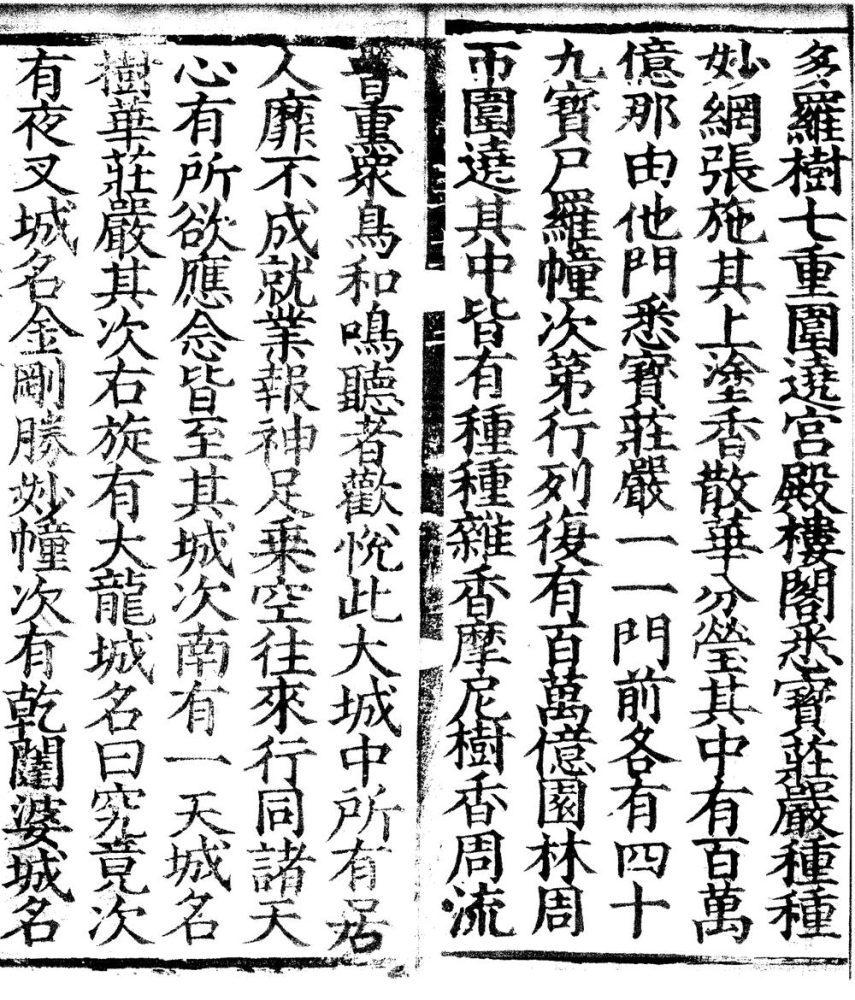 多羅樹七重圍遶宮殿樓閣悉寶莊嚴種種
妙網張施其上塗香散華芬瑩其中有百萬
億那由他門悉寶莊嚴一一門前各有四十
九寶尸羅幢次第行列復有百萬億園林周
帀圍遶其中皆有種種雜香摩尼樹香周流
普熏衆鳥和鳴聽者歡悅此大城中所有居
人靡不成就業報神足乗空往來行同諸天
心有所欲應念皆至其城次南有一天城名
樹華莊嚴其次右旋有大龍城名曰究竟次
有夜叉城名金剛勝妙幢次有乾闥婆城名